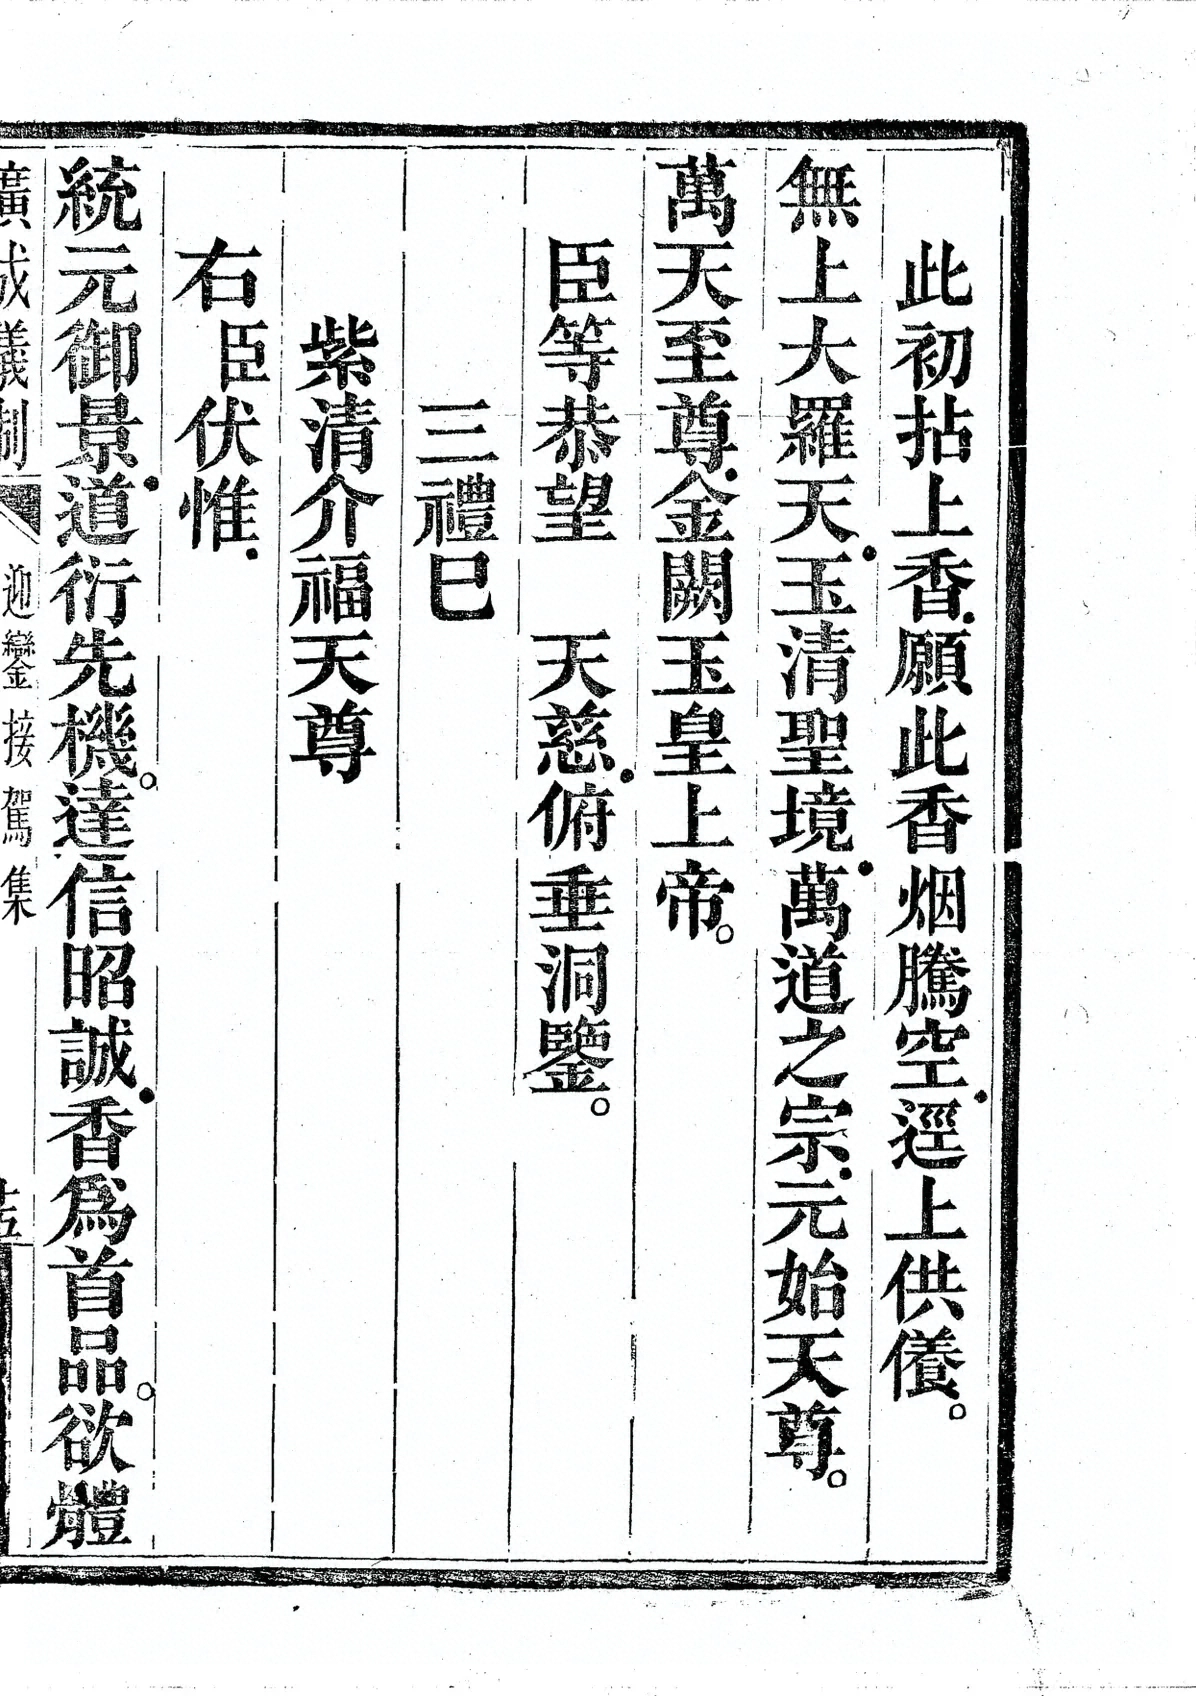 此初拈上香．願此香烟騰空．逕上供養。
無上大羅天．玉清聖境．萬道之宗．元始天尊。
萬天至尊．金闕玉皇上帝。
臣等恭望　天慈．俯垂洞鑒。
三禮巳
紫清介福天尊
右臣伏惟．
統元御景．道衍先機。達信昭誠．香為首品。欲體
廣成儀制　迎鑾接駕集